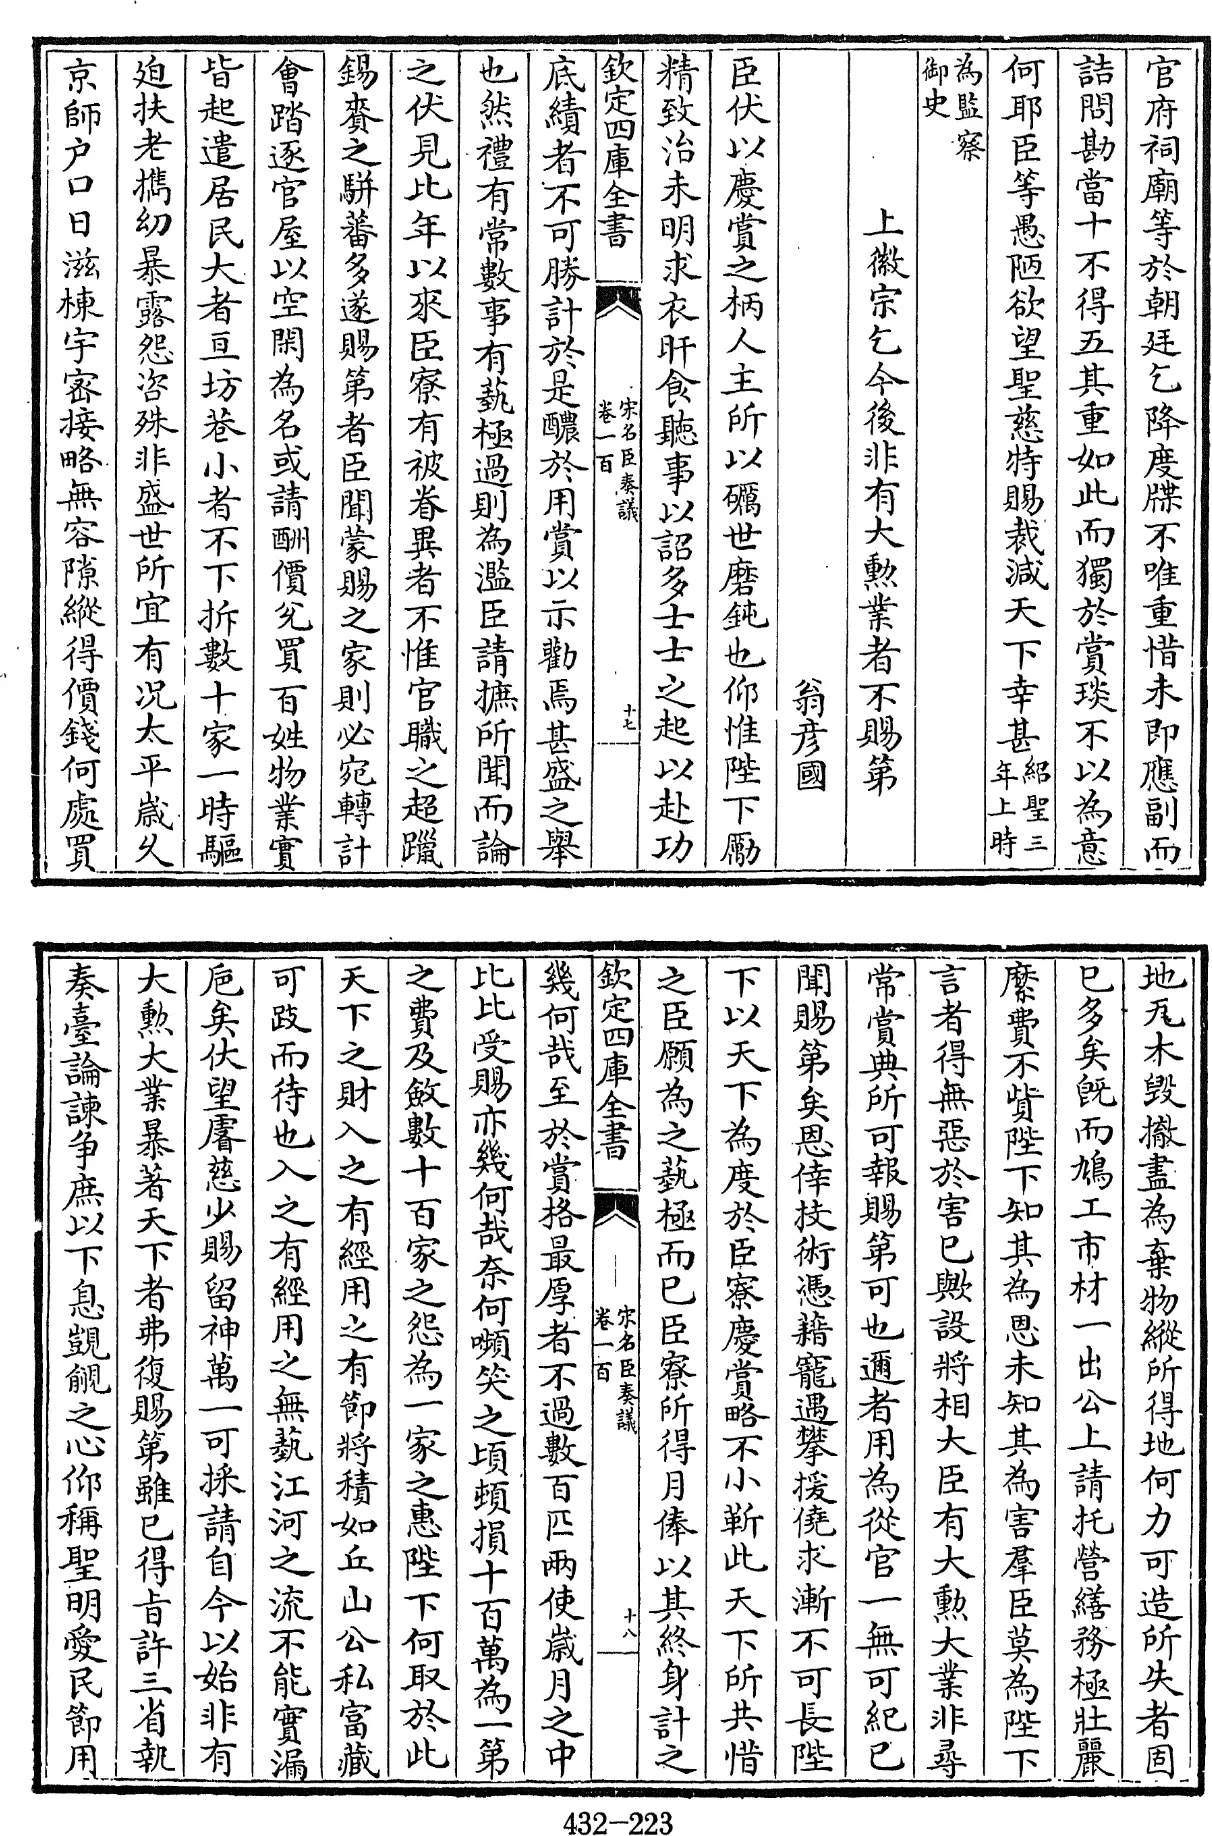 官府祠廟等於朝廷乞降度牒不唯重惜未即應副而
詰問勘當十不得五其重如此而獨於賞琰不以為意
何耶臣等愚陋欲望聖慈特賜裁減天下幸甚紹聖三年上時
為監察御史
上徽宗乞今後非有大勲業者不賜第
翁彦國
臣伏以慶賞之柄人主所以礪世磨鈍也仰惟陛下勵
精致治未明求衣旰食聽事以詔多士士之起以赴功
欽定四庫全書
宋名臣奏議
卷一百
十七
底績者不可勝計於是醲於用賞以示勸焉甚盛之舉
也然禮有常數事有藝極過則為濫臣請摭所聞而論
之伏見比年以來臣寮有被眷異者不惟官職之超躐
錫賚之駢蕃多遂賜第者臣聞蒙賜之家則必宛轉計
會踏逐官屋以空閑為名或請酬價兊買百姓物業實
皆起遣居民大者亘坊巷小者不下拆數十家一時驅
廹扶老攜幼暴露怨咨殊非盛世所宜有况太平嵗乆
京師户口日滋棟宇宻接略無容隙縱得價錢何處買
地瓦木毁撤盡為棄物縱所得地何力可造所失者固
已多矣既而鳩工市材一出公上請托營繕務極壯麗
縻費不貲陛下知其為恩未知其為害羣臣莫為陛下
言者得無惡於害已歟設將相大臣有大勲大業非尋
常賞典所可報賜第可也邇者用為從官一無可紀已
聞賜第矣恩倖技術憑藉寵遇攀援僥求漸不可長陛
下以天下為度於臣寮慶賞略不小靳此天下所共惜
之臣願為之藝極而已臣寮所得月俸以其終身計之
欽定四庫全書
宋名臣奏議
卷一百
十八
幾何哉至於賞格最厚者不過數百匹兩使嵗月之中
比比受賜亦幾何哉奈何嚬笑之頃頓損十百萬為一第
之費及斂數十百家之怨為一家之惠陛下何取於此
天下之財入之有經用之有節將積如丘山公私富藏
可跂而待也入之有經用之無藝江河之流不能實漏
巵矣伏望睿慈少賜留神萬一可採請自今以始非有
大勲大業暴著天下者弗復賜第雖已得旨許三省執
奏臺論諫争庶以下息覬覦之心仰稱聖明愛民節用
432-223